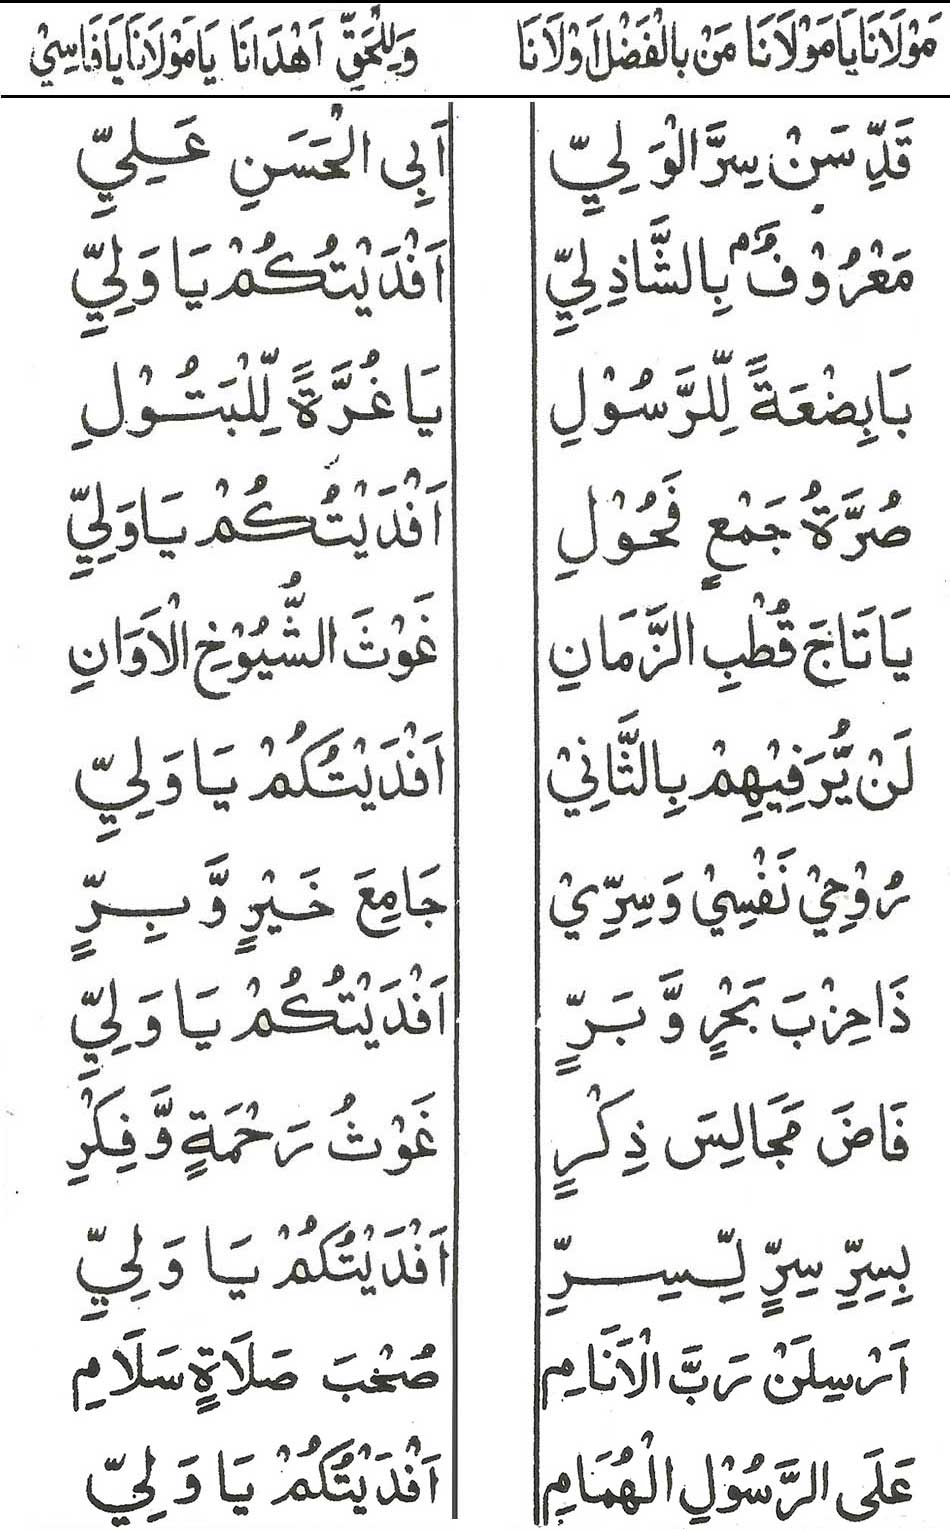 مَوْلَانَا يَا مَوْلَانَا مَنْ بِالْفَضْلِ اَوْلَانَا وَلِلْحَقِّ اَهْدَانَا يَا مَوْلَانَا يَا فَاسِيْ
قَدِّسَنْ سِرَّ الْوَلِيِّ اَبِى الْحَسَنِ عَلِيِّ
مَعْرُوْفٌ بِالشَّاذِلِيِّ اَفْدَيْتُكُمْ يَا وَلِيِّ
بَابِضْعَةً لِّلرَّسُوْلِ يَا غُرَّةً لِّلْبَتُوْلِ
صُرَّةُ جَمْعٍ فَحُوْلِ اَفْدَيْتُكُمْ يَاوَلِيِّ
يَا تَاجَ قُطْبِ الزَّمَانِ غَوْثَ الشُّيُوْخِ الْاَوَانِ
لَنْ يُّرَفِيْهِمْ بِالثَّانِيْ اَفْدَيْتُكُمْ يَا وَلِيِّ
رُوْحِيْ نَفْسِيْ وَسِرِّيْ جَامِعَ خَيْرٍ وَّ بِرٍّ
ذَا حِزْبَ بَحْرٍ وَّ بَرٍّ اَفْدَيْتُكُمْ يَا وَلِيِّ
فَاضَ مَجَالِسَ ذِكْرٍ غَوْثُ رَحْمَةٍ وَّفِكْرِ
بِسِرِّ سِرٍّ لِّسِرِّ اَفْدَيْتُكُمْ يَا وَلِيِّ
اَرْسِلَنْ رَبَّ الْاَنَامِ صُحْبَ صَلَاةٍ سَلَامِ
عَلَى الرَّسُوْلِ الْهُمَامِ اَفْدَيْتُكُمْ يَا وَلِيِّ